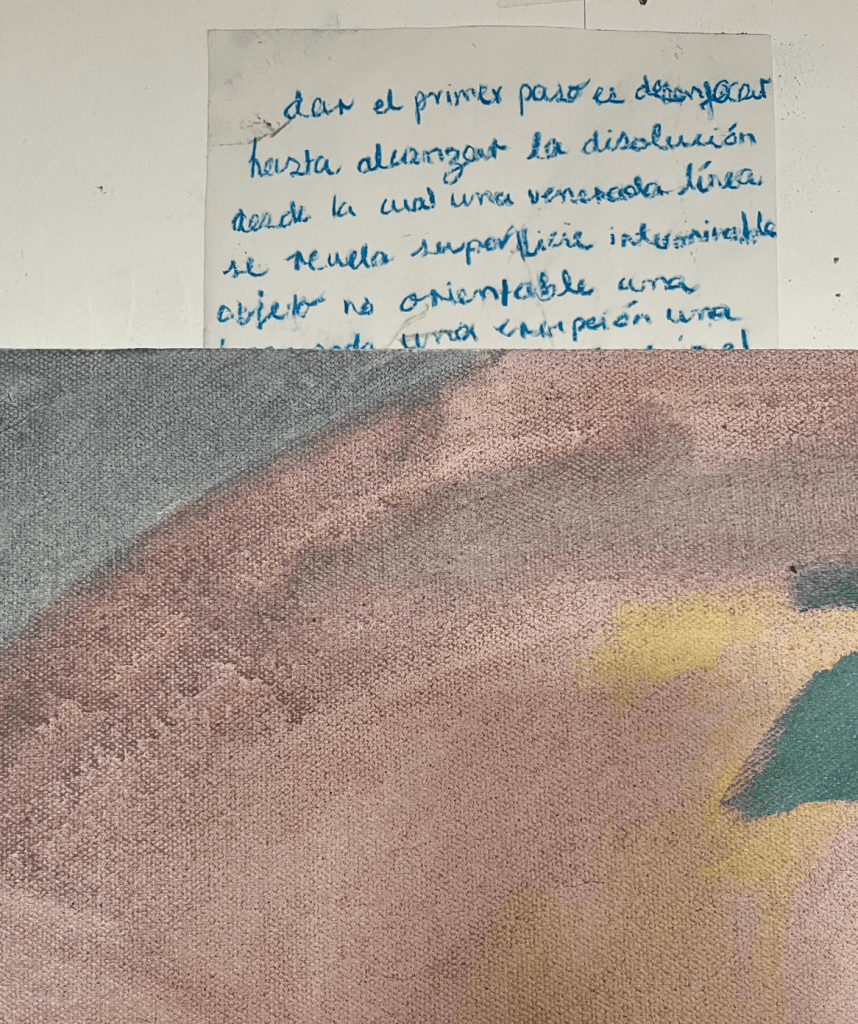 dar el primer paso es desenfocar
hasta alcanzar la disolución
desde la cual una venerada línea
se revela superficie interminable
objeto no orientable una
una erupción una
el